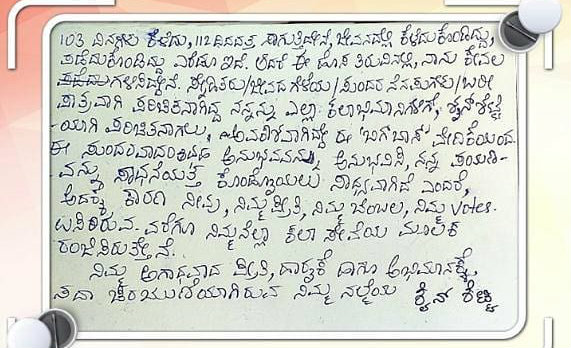 103 ದಿನಗಳು ಕಳೆದು, 112 ದಿನದತ್ತ ಸಾಗುತ್ತಿದ್ದೇನೆ, ಜೀವನದಲ್ಲಿ ಕಳೆದುಕೊಂಡಿದ್ದು,
ಪಡೆದುಕೊಂಡಿದ್ದು ಎರಡೂ ಇದೆ. ಆದರೆ ಈ ಜೊತೆ ತಿರುವಿನಲ್ಲಿ, ನಾನು ಕೇವಲ
ಪಡೆದು ಗಳಿಸಿದ್ದೇನೆ. ಸ್ನೇಹಿತರು/ಜೀವದ ಗೆಳೆಯ/ಸುಂದರ ನೆನಪುಗಳು/ಬರೀ
ಪಾತ್ರವಾಗಿ ಪರಿಚಿತನಾಗಿದ್ದ ನನ್ನನ್ನು ಎಲ್ಲಾ ಕಲಾಭಿಮಾನಿಗಳಿಗೆ, ಶೈನ್ ಶೆಟ್ಟಿ
-ಯಾಗಿ ಪರಿಚಿತನಾಗಲು, ಈ "ಬಿಗ್ ಬಾಸ್" ವೇದಿಕೆಯಿಂದ.
ಈ ಸುಂದರವಾದಂತಹ ಅನುಭವವನ್ನು, ಅನುಭವಿಸಿ, ನನ್ನ ಪಯಣ-
-ವನ್ನು ಸಾಧನೆಯತ್ತ ಕೊಂಡೊಯ್ಯಲು ಸಾಧ್ಯವಾಗಿದೆ ಎಂದರೆ,
ಅದಕ್ಕೆ ಕಾರಣ ನೀವು, ನಿಮ್ಮ ಪ್ರೀತಿ, ನಿಮ್ಮ ಬೆಂಬಲ, ನಿಮ್ಮ Votes.
ಉಸಿರಿರುವ ವರೆಗೂ ನಿಮ್ಮನ್ನೆಲ್ಲಾ ಕಲಾ ಸೇವೆಯ ಮೂಲಕ
ರಂಜಿಸಿರುತ್ತೇನೆ.
ನಿಮ್ಮ ಅಗಾಧವಾದ ಪ್ರೀತಿ, ಹಾರೈಕೆ ಹಾಗೂ ಅಭಿಮಾನಕ್ಕೆ,
ಸದಾ ಚಿರಋಣಿಯಾಗಿರುವ ನಿಮ್ಮ ನಲ್ಮೆಯ ಶೈನ್ ಶೆಟ್ಟಿ